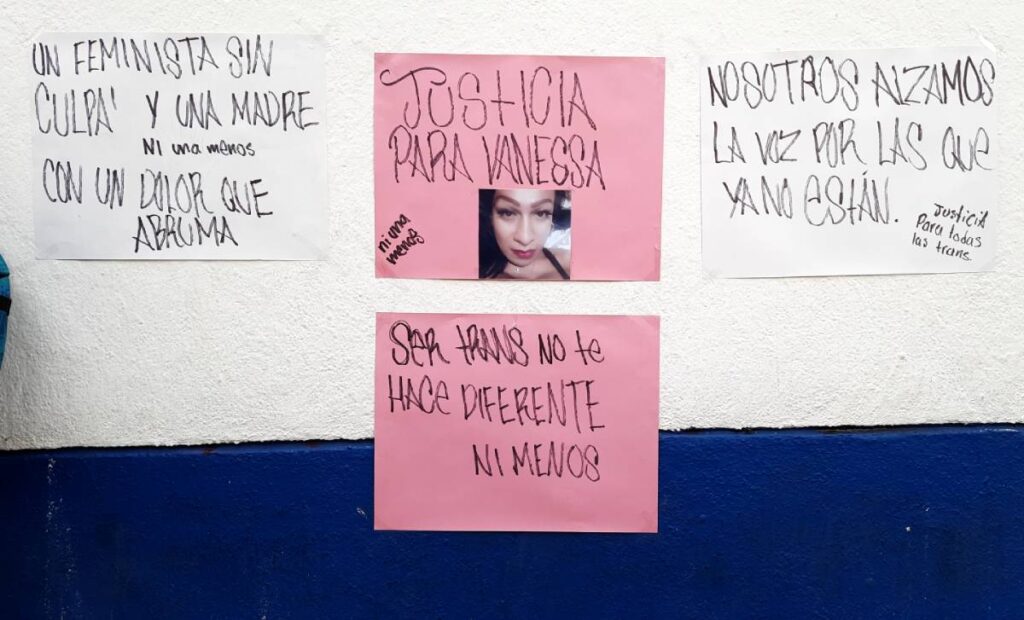 UN FEMINISTA SIN
CULPA' Y UNA MADRE
Ni una menos
CON UN DOLOR QUE
ABRUMA
JUSTICIA
PARA VANESSA
ni una
menos
NOSOTROS ALZAMOS
LA VOZ POR LAS QUE
YA NO ESTÁN.
Justicia
Para todas
las trans.
SER TRANS NO te
HACE DIFERENTE
NI MENOS